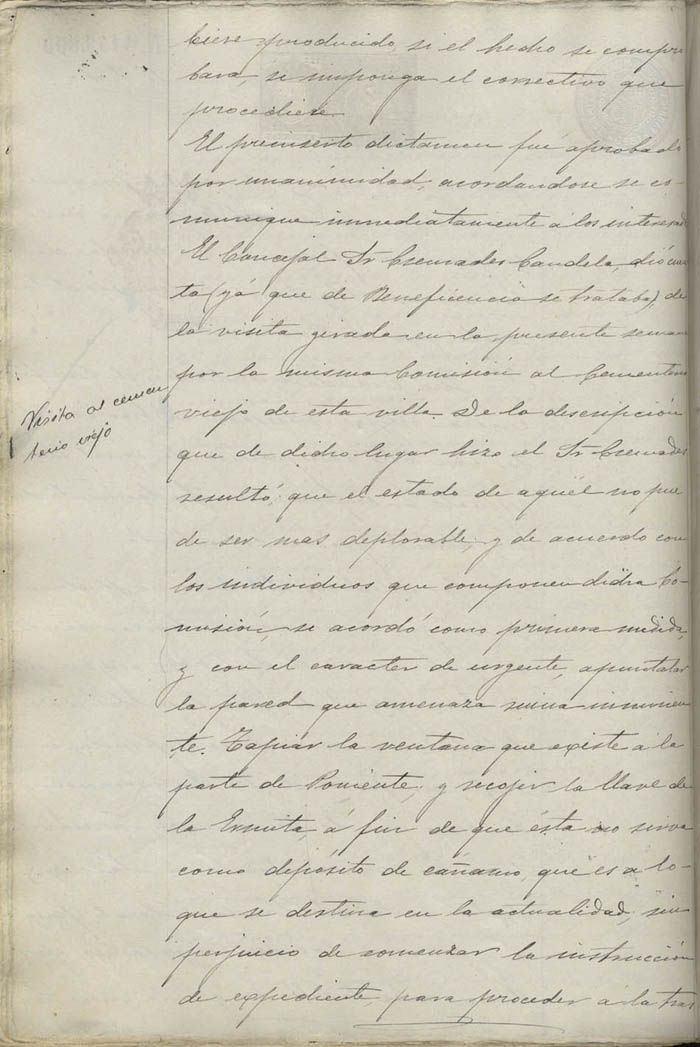 biere producido, si el hecho se compro
bara, se imponga el correctivo que
procediere.
El preinserto dictamen fué aprobado
por unanimidad, acordandose se co-
munique inmediatamente á los interesad
El Concejal Sr Cremades Candela, dió cuen
ta (yá que de Beneficencia se trataba), de
la visita girada en la presente seman
por la misma Comisión al Cementerio
viejo de esta villa. De la descripción
Visita al cemen
terio viejo
que de dicho lugar hizo el Sr Cremades
resultó, que el estado de aquél no pue
de ser mas deplorable, y de acuerdo con
los individuos que componen dicha Co-
misión, se acordó como primera medida,
y con el caracter de urgente, apuntalar
la pared que amenaza ruina inminen
te. Tapiar la ventana que existe á la
parte de Poniente, y recojer la llave de
la Ermita, á fin de que ésta no sirva
como depósito de cañamo, que es a lo
que se destina en la actualidad, sin
perjuicio de comenzar la instrucción
de expediente para proceder á la tras